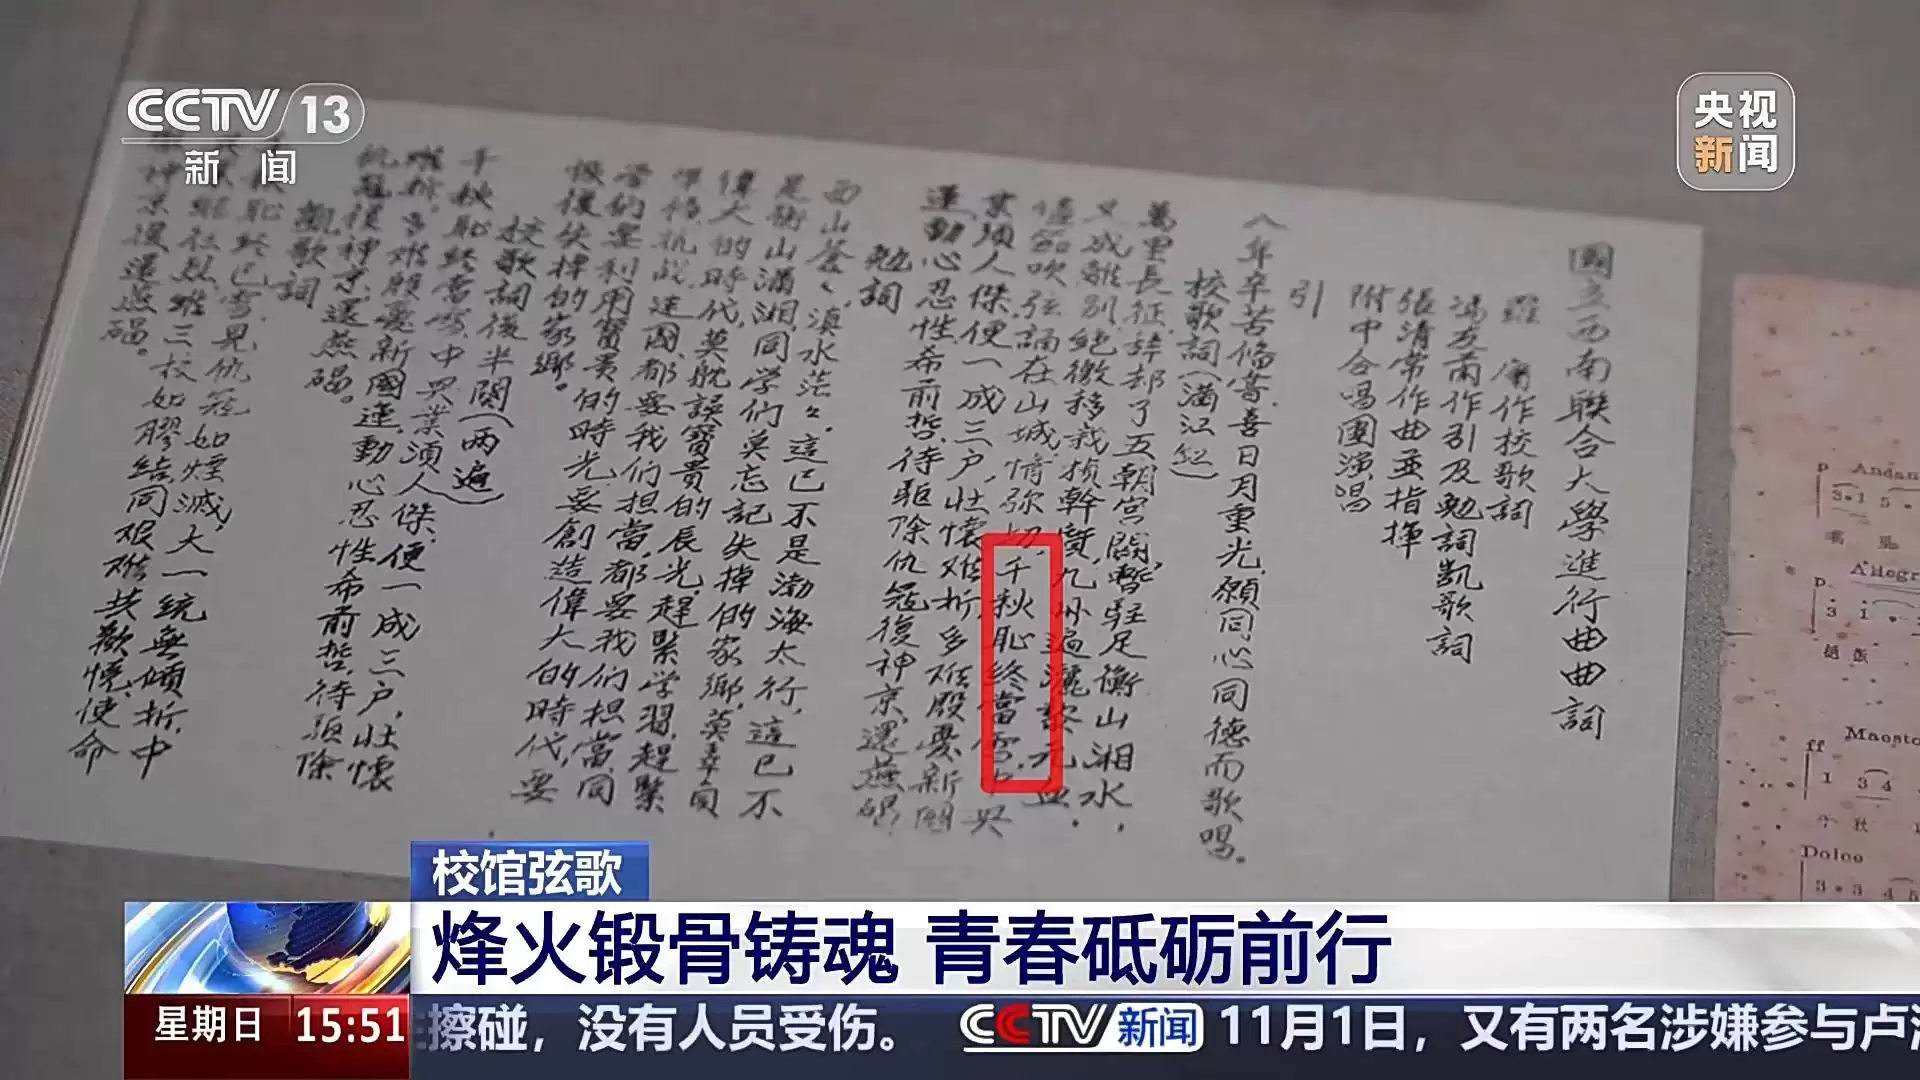 CCTV 13
新闻
央视
新闻
國立西南联合大學進行曲曲詞
羅庸作校歌詞
馮友蘭作引及勉詞凱歌詞
張清常作曲並指揮
附中合唱團演唱
引
八年辛苦備嘗,喜日月重光,願同心同德而歌唱。
校歌詞(滿江紅)
萬里長征,辭却了五朝宮闕,暫駐足衡山湘水,
又成離別,絶徼移栽楨幹質,九州遍灑黎元血,
儘笳吹弦誦在山城,情弥切,千秋恥,終當雪,中興
業,須人傑,便一成三户,壯懷难折,多难殷憂新國
運,動心忍性希前哲,待驅除仇寇復神京,還燕碣。
勉詞
西山蒼々,滇水茫々,這已不是渤海太行,這已不
是衡山瀟湘,同学們莫忘記失掉的家鄉,莫辜負
偉大的時代,莫躭誤寶貴的辰光,趕緊学習,趕緊
準備,抗战,建國,都要我们担當,都要我们担當,同
学们要利用寶貴的時光,要創造偉大的時代,要
恢復失掉的家鄉。
校歌詞後半闋(两遍)
千秋恥,終當雪,中興業,須人傑,便一成三户,壯懷
难折,多难殷憂新國運,動心忍性希前哲,待驅除
仇寇,復神京,還燕碣。
凱歌詞
恥,終已雪,見仇寇如煙滅,大一統無傾折,中
难三校如膠結,同艰难共歡悦,使命
神京復還燕碣。
p Andan
3 1 5
Allegr
p
3 1
Maesto
ff
1 3 4
千 秋
Dolce
3 3 4 5
校馆弦歌
烽火锻骨铸魂 青春砥砺前行
星期日 15:51
擦碰，没有人员受伤。 CCTV新闻 11月1日，又有两名涉嫌参与卢